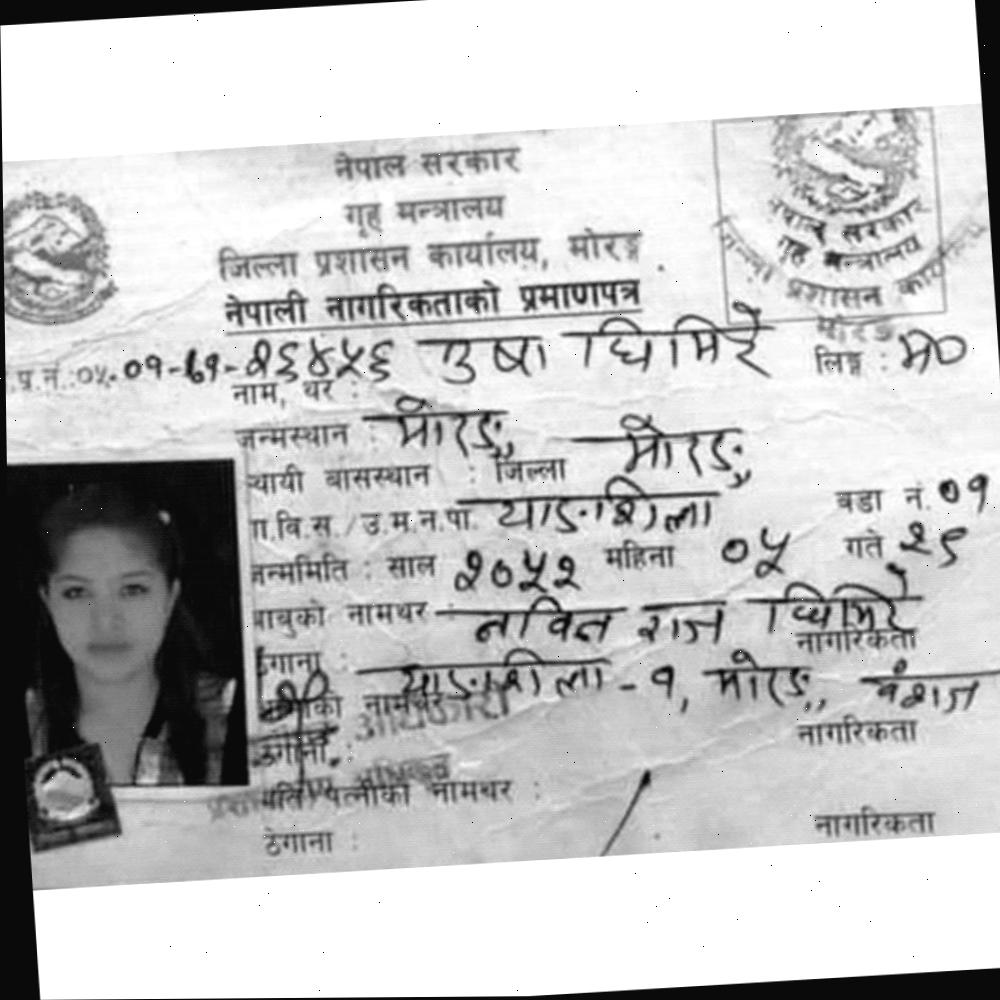 नेपाल सरकार
गृह मन्त्रालय
जिल्ला प्रशासन कार्यालय, मोरङ्ग
नेपाली नागरिकताको प्रमाणपत्र
नेपाल सरकार
गृह मन्त्रालय
जिल्ला प्रशासन कार्यालय
मोरङ
प्र.नं.:०५-०१-७१- उषा घिमिरे लिङ्ग : म०
नाम, थर :
जन्मस्थान : मोरङ
स्थायी बासस्थान : जिल्ला मोरङ
गा.वि.स./उ.म.न.पा. याङशिला वडा नं. ०१
जन्ममिति : साल २०५२ महिना ०५ गते २९
बाबुको नामथर : नविन राज घिमिरे
नागरिकता
ठेगाना : याङशिला - १, मोरङ, वंशज
आमाको नामथर
ठेगाना : नागरिकता
पति/पत्नीको नामथर :
ठेगाना : नागरिकता